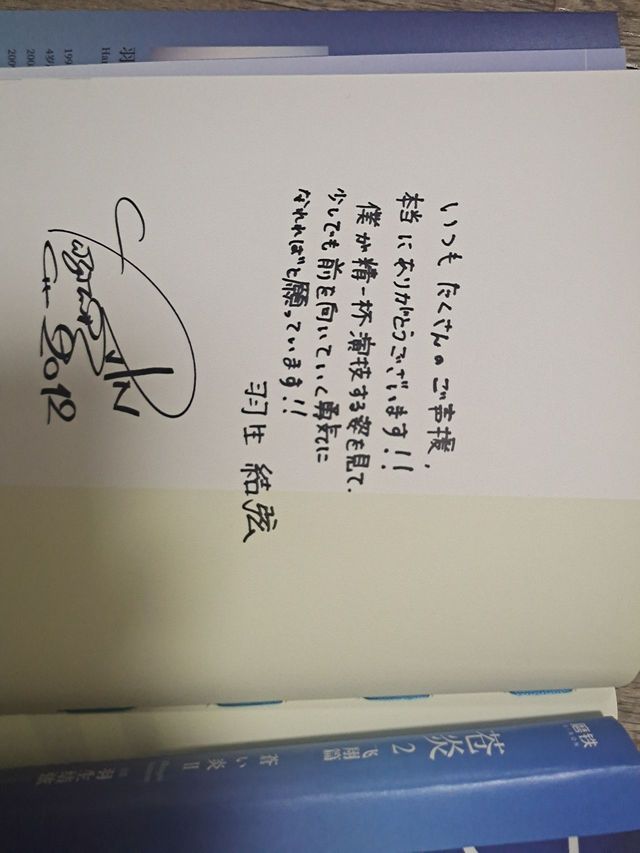 いつもたくさんのご声援、
本当にありがとうございます!!
僕が精一杯演技する姿を見て、
少しでも前を向いていく勇気に
なれればと願っています!!
羽生結弦
2012
苍炎2 飞翔篇
蒼い炎II
羽生结弦
磨铁
羽
Ha
199
4岁
200
200